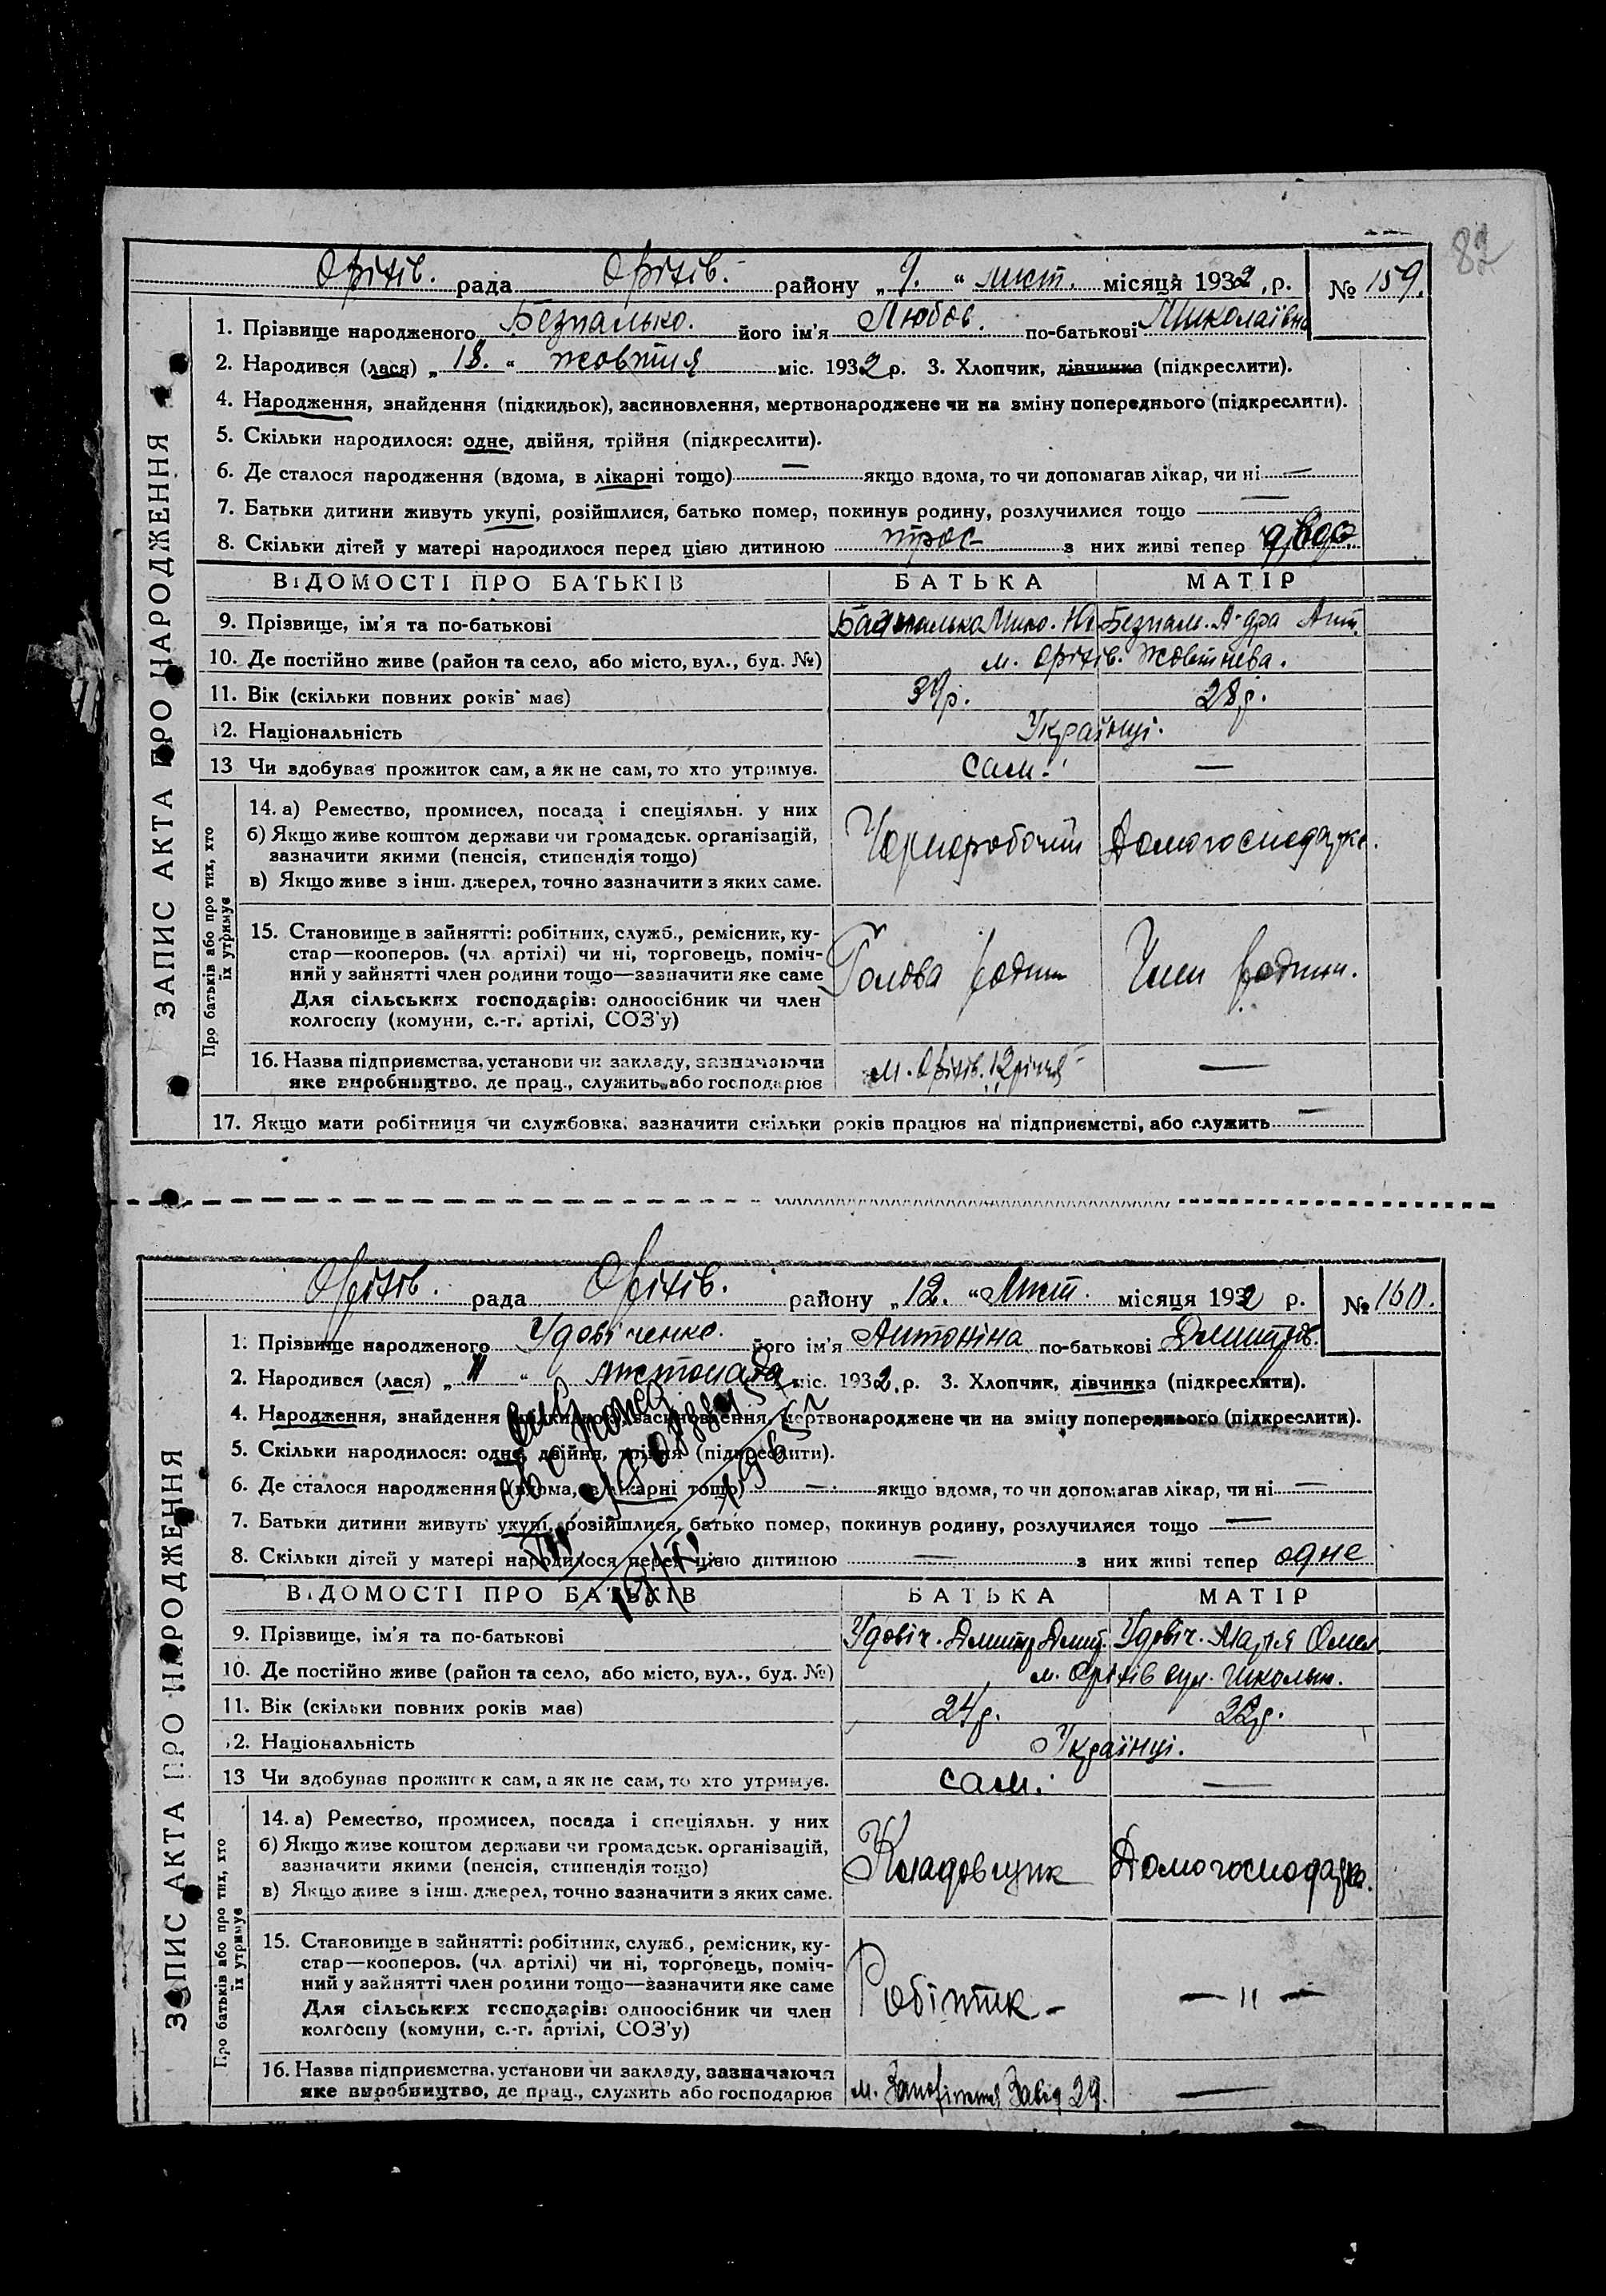 82
Оріхів. рада Оріхів. району „9.“ лист. місяця 1932 р. № 159.
1. Прізвище народженого Безпалько. його ім'я Любов. по-батькові Миколаївна
2. Народився (лася) „18.“ жовтня міс. 1932 р. 3. Хлопчик, дівчинка (підкреслити).
4. Народження, знайдення (підкидьок), засиновлення, мертвонароджене чи на зміну попереднього (підкреслити).
5. Скільки народилося: одне, двійня, трійня (підкреслити).
6. Де сталося народження (вдома, в лікарні тощо) — якщо вдома, то чи допомагав лікар, чи ні —
7. Батьки дитини живуть укупі, розійшлися, батько помер, покинув родину, розлучилися тощо —
8. Скільки дітей у матері народилося перед цією дитиною троє з них живі тепер двоє
ВІДОМОСТІ ПРО БАТЬКІВ БАТЬКА МАТІР
9. Прізвище, ім'я та по-батькові Мико. Безпал.
10. Де постійно живе (район та село, або місто, вул., буд. №) м. Оріхів. Жовтнева.
11. Вік (скільки повних років має) 28 р.
12. Національність Українці.
13 Чи здобуває прожиток сам, а як не сам, то хто утримує. сам. —
ЗАПИС АКТА ПРО НАРОДЖЕННЯ
Про батьків або про тих, хто
їх утримує
14. а) Ремество, промисел, посада і спеціяльн. у них
б) Якщо живе коштом держави чи громадськ. організацій,
зазначити якими (пенсія, стипендія тощо) Чорноробочий Домогосподарка.
в) Якщо живе з інш. джерел, точно зазначити з яких саме.
15. Становище в зайнятті: робітник, служб., ремісник, ку-
стар—кооперов. (чл. артілі) чи ні, торговець, поміч-
ний у зайнятті член родини тощо—зазначити яке саме Голова родин Член родини.
Для сільських господарів: одноосібник чи член
колгоспу (комуни, с.-г. артілі, СОЗ'у)
16. Назва підприємства, установи чи закладу, зазначаючи
яке виробництво, де прац., служить або господарює м. Оріхів. —
17. Якщо мати робітниця чи службовка, зазначити скільки років працює на підприємстві, або служить —
Оріхів. рада Оріхів. району „12.“ Лист. місяця 1932 р. № 160.
1. Прізвище народженого Удовіченко. його ім'я Антоніна по-батькові Дмитрів.
2. Народився (лася) „11“ листопада міс. 1932 р. 3. Хлопчик, дівчинка (підкреслити).
4. Народження, знайдення (підкидьок), засиновлення, мертвонароджене чи на зміну попереднього (підкреслити).
5. Скільки народилося: одне, двійня, трійня (підкреслити).
6. Де сталося народження (вдома, в лікарні тощо) — якщо вдома, то чи допомагав лікар, чи ні —
7. Батьки дитини живуть укупі, розійшлися, батько помер, покинув родину, розлучилися тощо —
8. Скільки дітей у матері народилося перед цією дитиною — з них живі тепер одне
ВІДОМОСТІ ПРО БАТЬКІВ БАТЬКА МАТІР
9. Прізвище, ім'я та по-батькові Удовіч. Дмитр Дмит. Удовіч. Марія Омел
10. Де постійно живе (район та село, або місто, вул., буд. №) м. Оріхів вул. Школьн.
11. Вік (скільки повних років має) 24 р. 22 р.
12. Національність Українці.
13 Чи здобуває прожиток сам, а як не сам, то хто утримує. сам. —
ЗАПИС АКТА ПРО НАРОДЖЕННЯ
Про батьків або про тих, хто
їх утримує
14. а) Ремество, промисел, посада і спеціяльн. у них
б) Якщо живе коштом держави чи громадськ. організацій,
зазначити якими (пенсія, стипендія тощо) Кладовщик Домогосподарка.
в) Якщо живе з інш. джерел, точно зазначити з яких саме.
15. Становище в зайнятті: робітник, служб., ремісник, ку-
стар—кооперов. (чл. артілі) чи ні, торговець, поміч-
ний у зайнятті член родини тощо—зазначити яке саме Робітник — — " —
Для сільських господарів: одноосібник чи член
колгоспу (комуни, с.-г. артілі, СОЗ'у)
16. Назва підприємства, установи чи закладу, зазначаючи
яке виробництво, де прац., служить або господарює м. Запоріжжя Завід 29. —